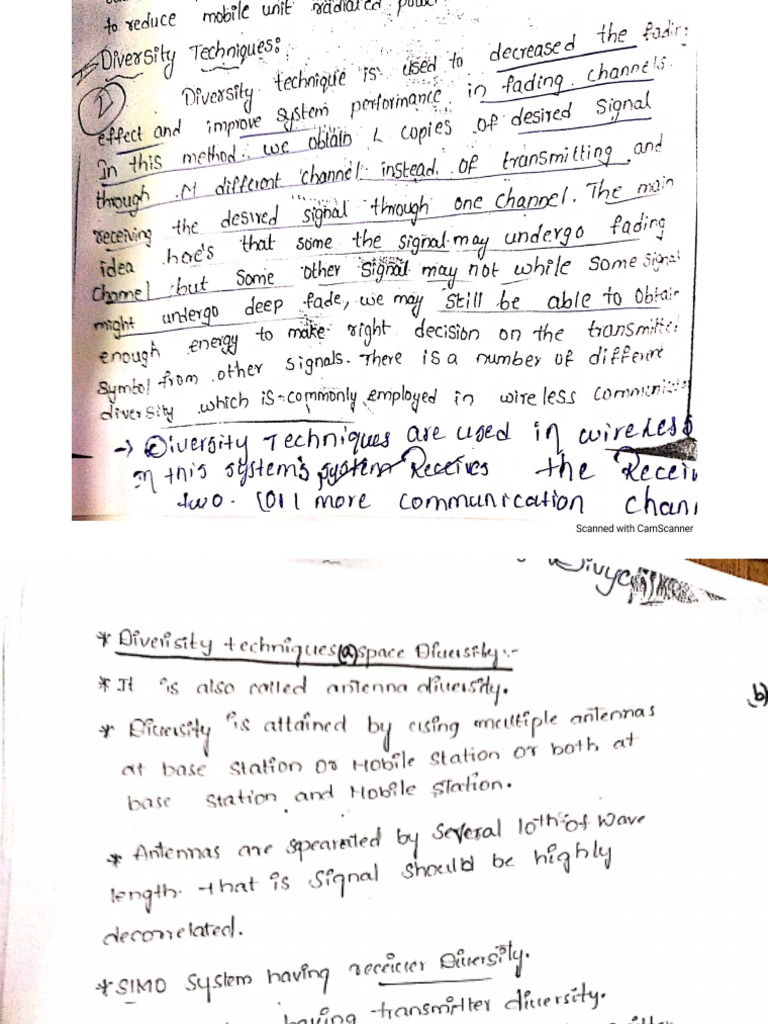 to reduce mobile unit radiated power
Diversity Techniques:
Diversity technique is used to decreased the fading
effect and improve system performance in fading channels.
In this method we obtain L copies of desired Signal
through M different channel instead of transmitting and
receiving the desired signal through one channel. The main
idea here's that some the signal may undergo fading
Channel but some other signal may not while some signal
might undergo deep fade, we may still be able to obtain
enough energy to make right decision on the transmitted
symbol from other signals. There is a number of different
diversity which is commonly employed in wireless
→ Diversity Techniques are used in wireless
In this system's system Receives the
two more communication
Scanned with CamScanner
* Diverisity techniques (a) space Diversity:-
* It is also called antenna diversity.
b)
* Diversity is attained by using multiple antennas
at base station or Mobile Station or both at
base station and Mobile Station.
* Antennas are spearated by several 10th of wave
length. that is signal should be highly
decorrelated.
* SIMO System having receiver Diversity.
having transmitter diversity.